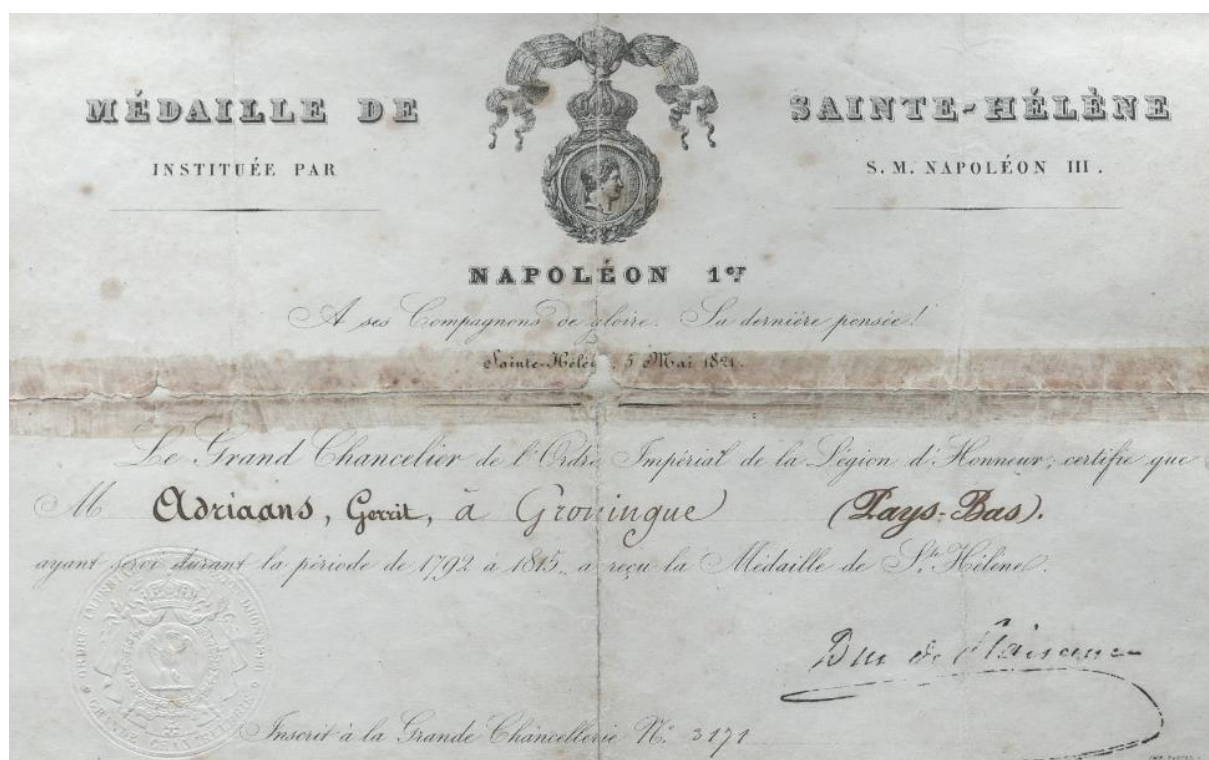 MÉDAILLE DE SAINTE-HÉLÈNE
INSTITUÉE PAR S. M. NAPOLÉON III.
NAPOLÉON 1er
A ses Compagnons de gloire. Sa dernière pensée!
Sainte-Hélè , 5 Mai 1821.
Le Grand Chancelier de l'Ordre Impérial de la Légion d'Honneur, certifie que
M Adriaans, Gerrit, à Groningue (Pays-Bas).
ayant servi durant la période de 1792 à 1815, a reçu la Médaille de Ste Hélène.
Duc de Plaisance
Inscrit à la Grande Chancellerie No. 3171